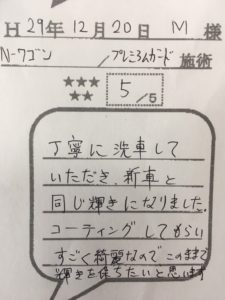 H 29年 12月 20日 M 様
N-ワゴン / プレミアムガード 施術
★★★
★★
5 /5
丁寧に洗車して
いただき、新車と
同じ輝きになりました。
コーティングしてもらい
すごく綺麗なので このままで
輝きを保ちたいと思います